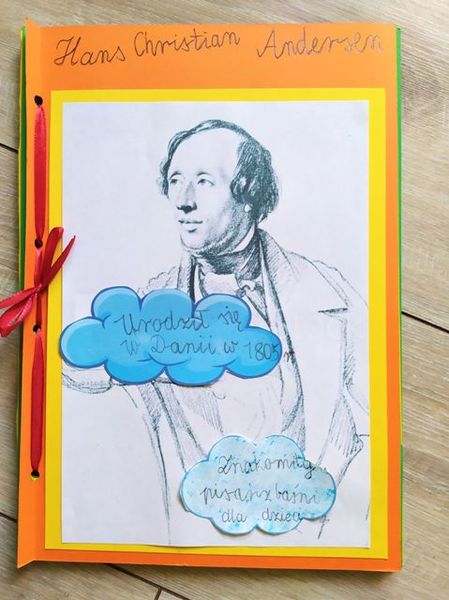 Hans Christian Andersen
Urodził się
w Danii w 1805 r.
Znakomity
pisarz baśni
dla dzieci